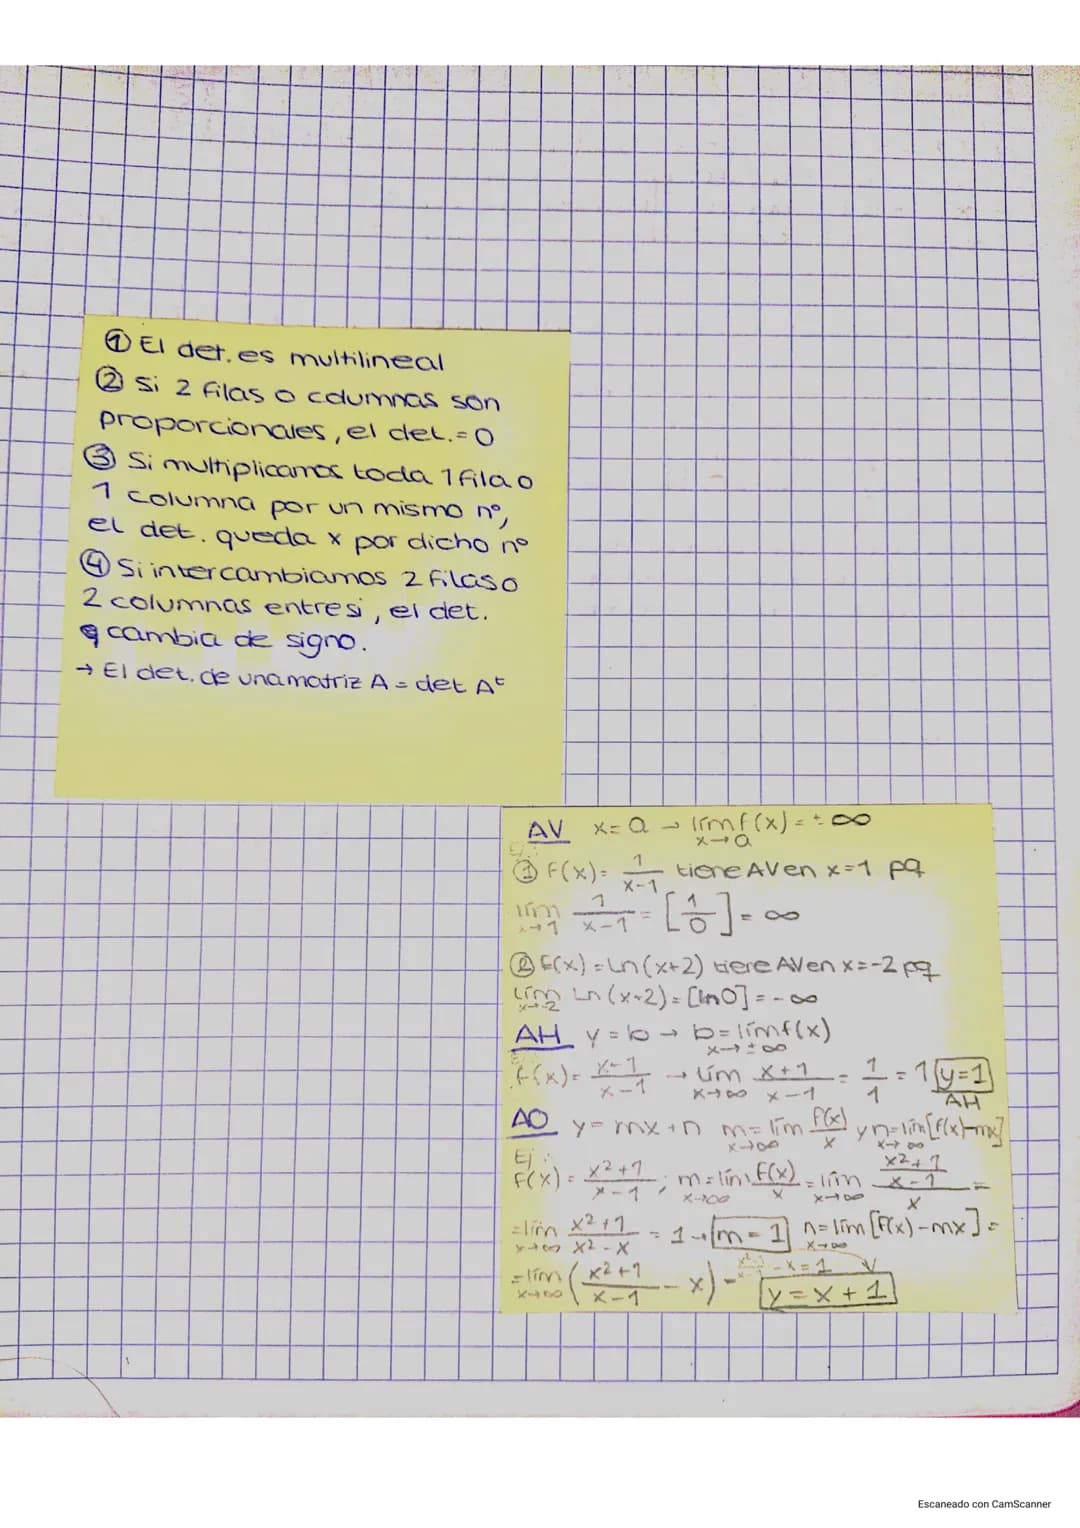 ① El det. es multilineal
② Si 2 filas o columnas son
proporcionales, el det. = 0
③ Si multiplicamos toda 1 fila o
1 columna por un mismo nº,
el det. queda x por dicho nº
④ Si intercambiamos 2 filas o
2 columnas entresi, el det.
cambia de signo.
→ El det. de una matriz A = det Aᵗ
AV x = a → lím f(x) = ± ∞
x→a
① f(x) = 1/(x-1) tiene AV en x=1 pq
lím x→1 1/(x-1) = [1/0] = ∞
② f(x) = Ln(x+2) tiene AV en x=-2 pq
lím x→-2 Ln(x+2) = [ln0] = -∞
AH y = b → b = lím f(x)
x→±∞
f(x) = /(x-1) → lím x→∞ (x+1)/(x-1) = 1/1 = 1 y=1
AH
AO y = mx + n m = lím x→∞ f(x)/x y n = lím x→∞ [f(x)-mx]
Ej:
f(x) = (x²+1)/(x-1) ; m = lím x→∞ f(x)/x = lím x→∞ ((x²+1)/(x-1))/x =
= lím x→∞ (x²+1)/(x²-x) = 1 → m = 1 n = lím x→∞ [f(x)-mx] =
= lím x→∞ ((x²+1)/(x-1) - x) = - x = 1
y = x + 1
Escaneado con CamScanner